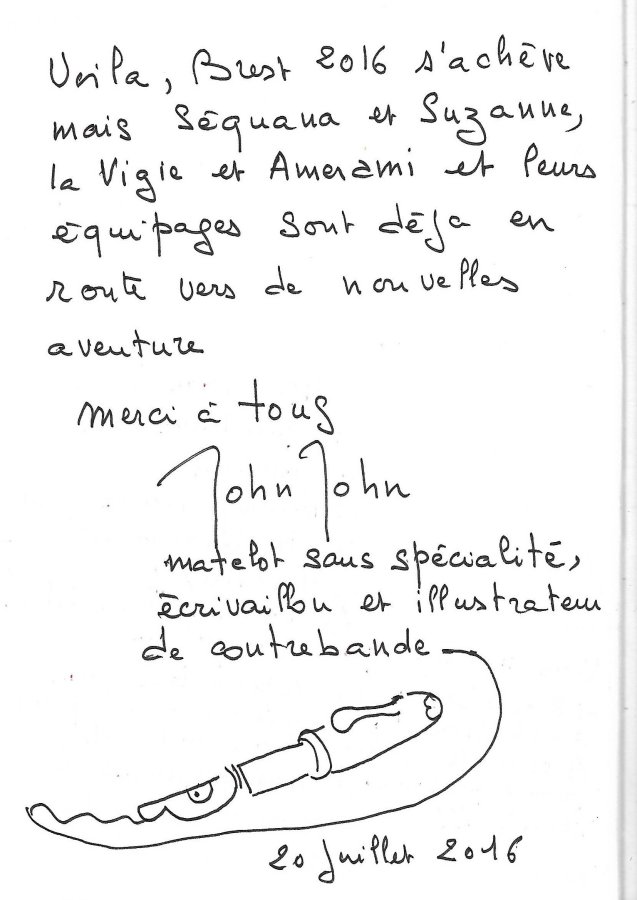 Voila, Brest 2016 s'achève
mais Séquana et Suzanne,
la Vigie et Amerami et leurs
équipages sont déja en
route vers de nouvelles
aventure
merci à tous
John John
matelot sans spécialité,
écrivaillon et illustrateur
de contrebande
20 Juillet 2016